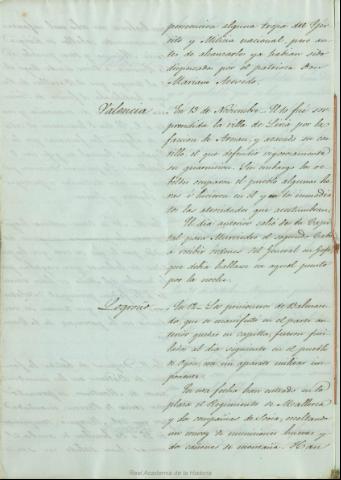 persecucion alguna tropa del Ejer-
cito y Milicia nacional, pero an-
tes de alcanzarlos ya habian sido
dispersados por el patriota Don
Mariano Acevedo.
Valencia .... En 13 de Noviembre. El 10 fué sor-
prendida la villa de Liria por la
faccion de Arnau, y atacado su cas-
tillo el que defendió vigorosamente
su guarnicion. Sin embargo los re-
beldes ocuparon el pueblo algunas ho-
ras é hicieron en él y en los inmedia-
tos las atrocidades que acostumbran.
El dia anterior salió de la Capi-
tal para Murviedro el segundo Cabo
á recibir órdenes del general en Gefe
que debia hallarse en aquel punto
por la noche.
Logroño .... En 12. Los prisioneros de Balmase-
da, que se manifestó en el parte an-
terior quedar en capilla, fueron fusi-
lados al dia siguiente en el pueblo
de con un aparato militar im-
ponente.
En esta fecha han entrado en la
plaza el Regimiento de Mallorca
y dos compañias de Soria, escoltando
un convoy de municiones
y dos cañones de montaña. Han
Real Academia de la Historia